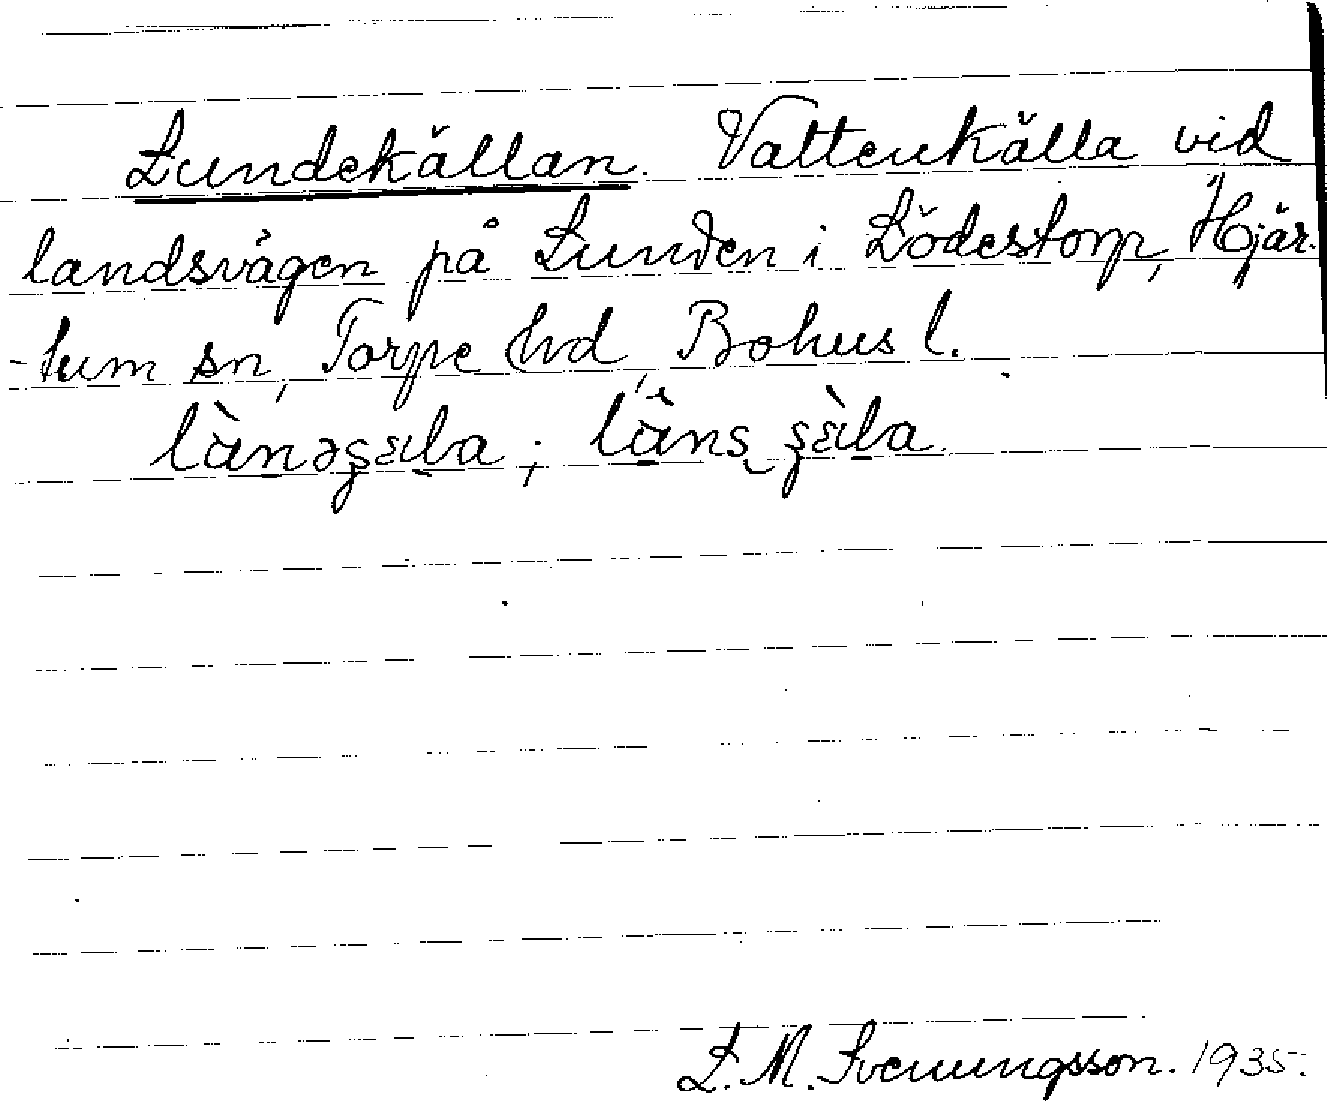 Lundekällan. Vattenkälla vid
landsvägen på Lunden i Lödestorp, Hjär-
-tum sn, Torpe hd, Bohus l.
L. M. Svenungsson. 1935.